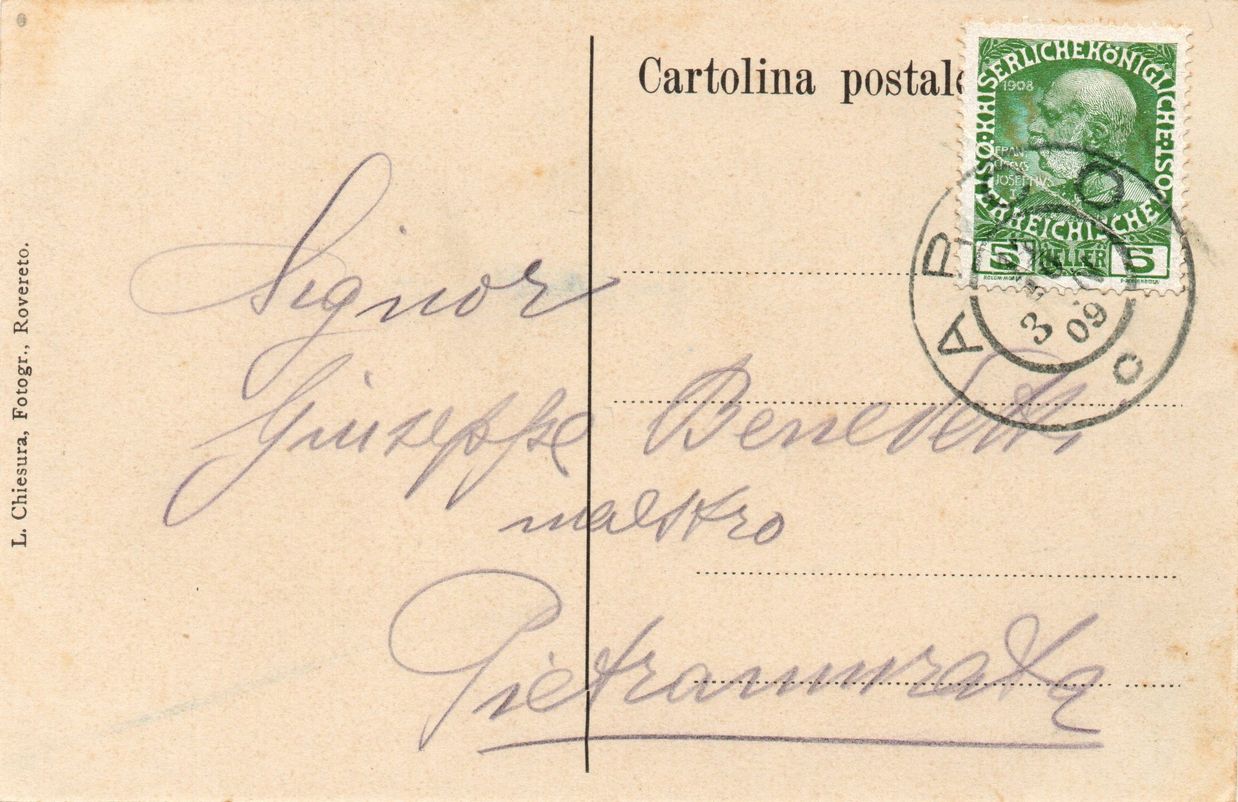 Cartolina postale
KAISERLICHE KÖNIGLICHE ÖSTERREICHISCHE
1908
5 HELLER 5
ARCO
3
09
Signor
Giuseppe Benedetti
maestro
Pietramurata
L. Chiesura, Fotogr., Rovereto.